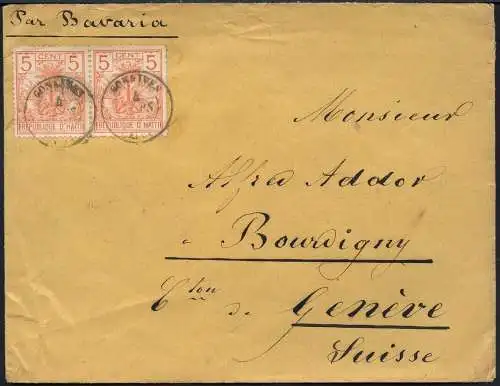 Par Bavaria
5 CENT 5 5 CENT 5
GONAIVES GONAIVES
REPUBLIQUE D'HAITI REPUBLIQUE D'HAITI
Monsieur
Alfred Addor
à Bourdigny
Cton de Genève
Suisse